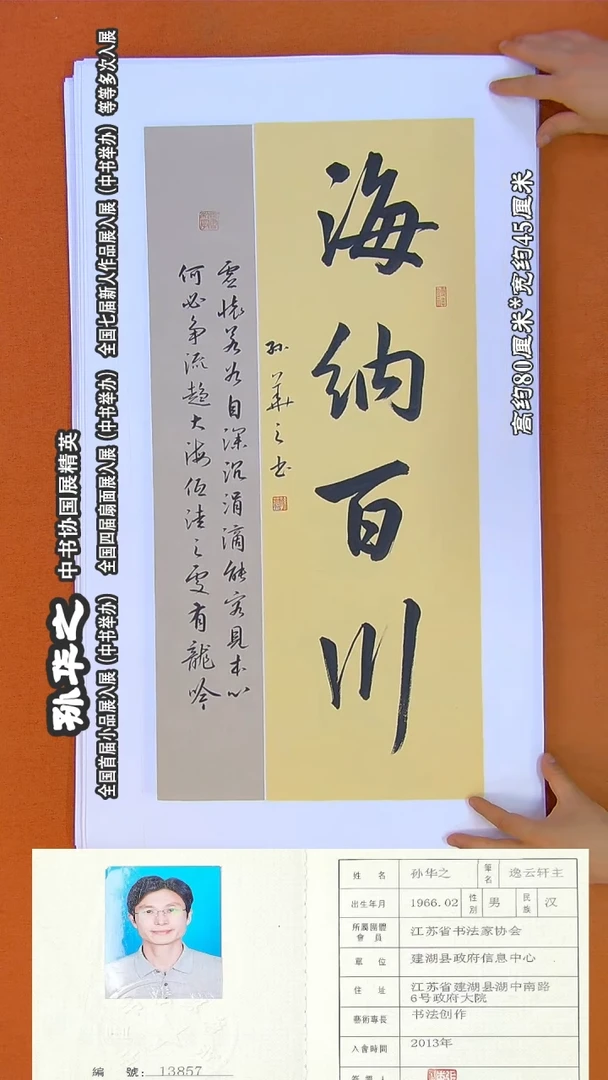 海纳百川
孙华之书
虚怀若谷自深沉涓滴能容见本心
何必争流趋大海低洼之处有龙吟
高约80厘米*宽约45厘米
全国首届小品展入展（中书举办） 全国四届扇面展入展（中书举办） 全国七届新人作品展入展（中书举办） 等等多次入展
孙华之 中书协国展精英
姓名 孙华之 笔名 逸云轩主
出生年月 1966.02 性别 男 民族 汉
所属团体會員 江苏省书法家协会
單位 建湖县政府信息中心
住址 江苏省建湖县湖中南路
6号政府大院
藝術專長 书法创作
入會時間 2013年
編號：13857